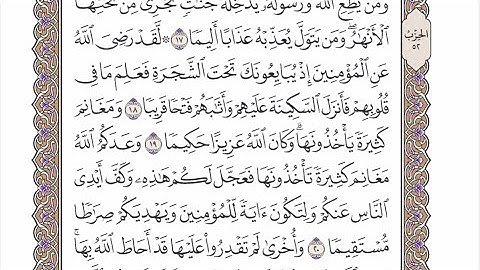 وَمَن يُطِعِ ٱللَّهَ وَرَسُولَهُۥ يُدْخِلْهُ جَنَّٰتٍ تَجْرِى مِن تَحْتِهَا
ٱلْأَنْهَٰرُ ۖ وَمَن يَتَوَلَّ يُعَذِّبْهُ عَذَابًا أَلِيمًا ١٧ ۞ لَّقَدْ رَضِىَ ٱللَّهُ
عَنِ ٱلْمُؤْمِنِينَ إِذْ يُبَايِعُونَكَ تَحْتَ ٱلشَّجَرَةِ فَعَلِمَ مَا فِى
قُلُوبِهِمْ فَأَنزَلَ ٱلسَّكِينَةَ عَلَيْهِمْ وَأَثَٰبَهُمْ فَتْحًا قَرِيبًا ١٨ وَمَغَانِمَ
كَثِيرَةً يَأْخُذُونَهَا ۗ وَكَانَ ٱللَّهُ عَزِيزًا حَكِيمًا ١٩ وَعَدَكُمُ ٱللَّهُ
مَغَانِمَ كَثِيرَةً تَأْخُذُونَهَا فَعَجَّلَ لَكُمْ هَٰذِهِۦ وَكَفَّ أَيْدِىَ
ٱلنَّاسِ عَنكُمْ وَلِتَكُونَ ءَايَةً لِّلْمُؤْمِنِينَ وَيَهْدِيَكُمْ صِرَٰطًا
مُّسْتَقِيمًا ٢٠ وَأُخْرَىٰ لَمْ تَقْدِرُوا۟ عَلَيْهَا قَدْ أَحَاطَ ٱللَّهُ بِهَا ۚ
الحزب
٥٢